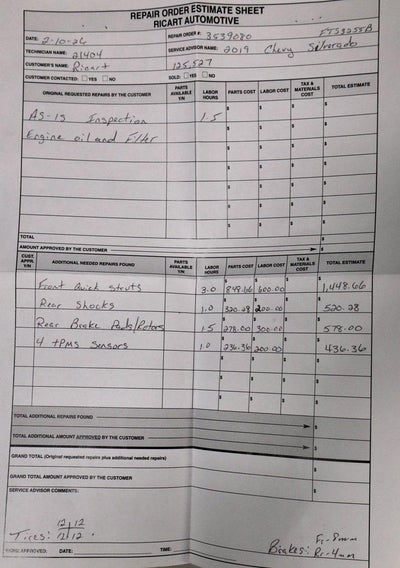 REPAIR ORDER ESTIMATE SHEET
RICART AUTOMOTIVE
DATE: 2-10-26 REPAIR ORDER #: 3539080 FTS3255B
TECHNICIAN NAME: 21404 SERVICE ADVISOR NAME: 2019 Chevy Silverado
CUSTOMER'S NAME: Ricart 125,527
CUSTOMER CONTACTED: YES NO SOLD: YES NO
ORIGINAL REQUESTED REPAIRS BY THE CUSTOMER PARTS AVAILABLE Y/N LABOR HOURS PARTS COST LABOR COST TAX & MATERIALS COST TOTAL ESTIMATE
AS-IS Inspection 1.5 $ $ $
Engine oil and Filter $ $ $
$ $ $
$ $ $
$ $ $
$ $ $
$ $ $
TOTAL
AMOUNT APPROVED BY THE CUSTOMER $
CUST. APPR. Y/N ADDITIONAL NEEDED REPAIRS FOUND PARTS AVAILABLE Y/N LABOR HOURS PARTS COST LABOR COST TAX & MATERIALS COST TOTAL ESTIMATE
Front Quick struts 3.0 $848.66 $600.00 $ $1,448.66
Rear Shocks 1.0 320.28 200.00 $ $520.28
Rear Brake Pads/Rotors 1.5 278.00 300.00 $ $578.00
4 TPMS Sensors 1.0 236.36 200.00 $ $436.36
$ $ $
$ $ $
TOTAL ADDITIONAL REPAIRS FOUND $
TOTAL ADDITIONAL AMOUNT APPROVED BY THE CUSTOMER $
GRAND TOTAL (Original requested repairs plus additional needed repairs) $
GRAND TOTAL AMOUNT APPROVED BY THE CUSTOMER $
SERVICE ADVISOR COMMENTS:
Tires: 12 12
12 12
Brakes: Fr-8mm
Rr-4mm
WORK APPROVED: DATE: TIME: